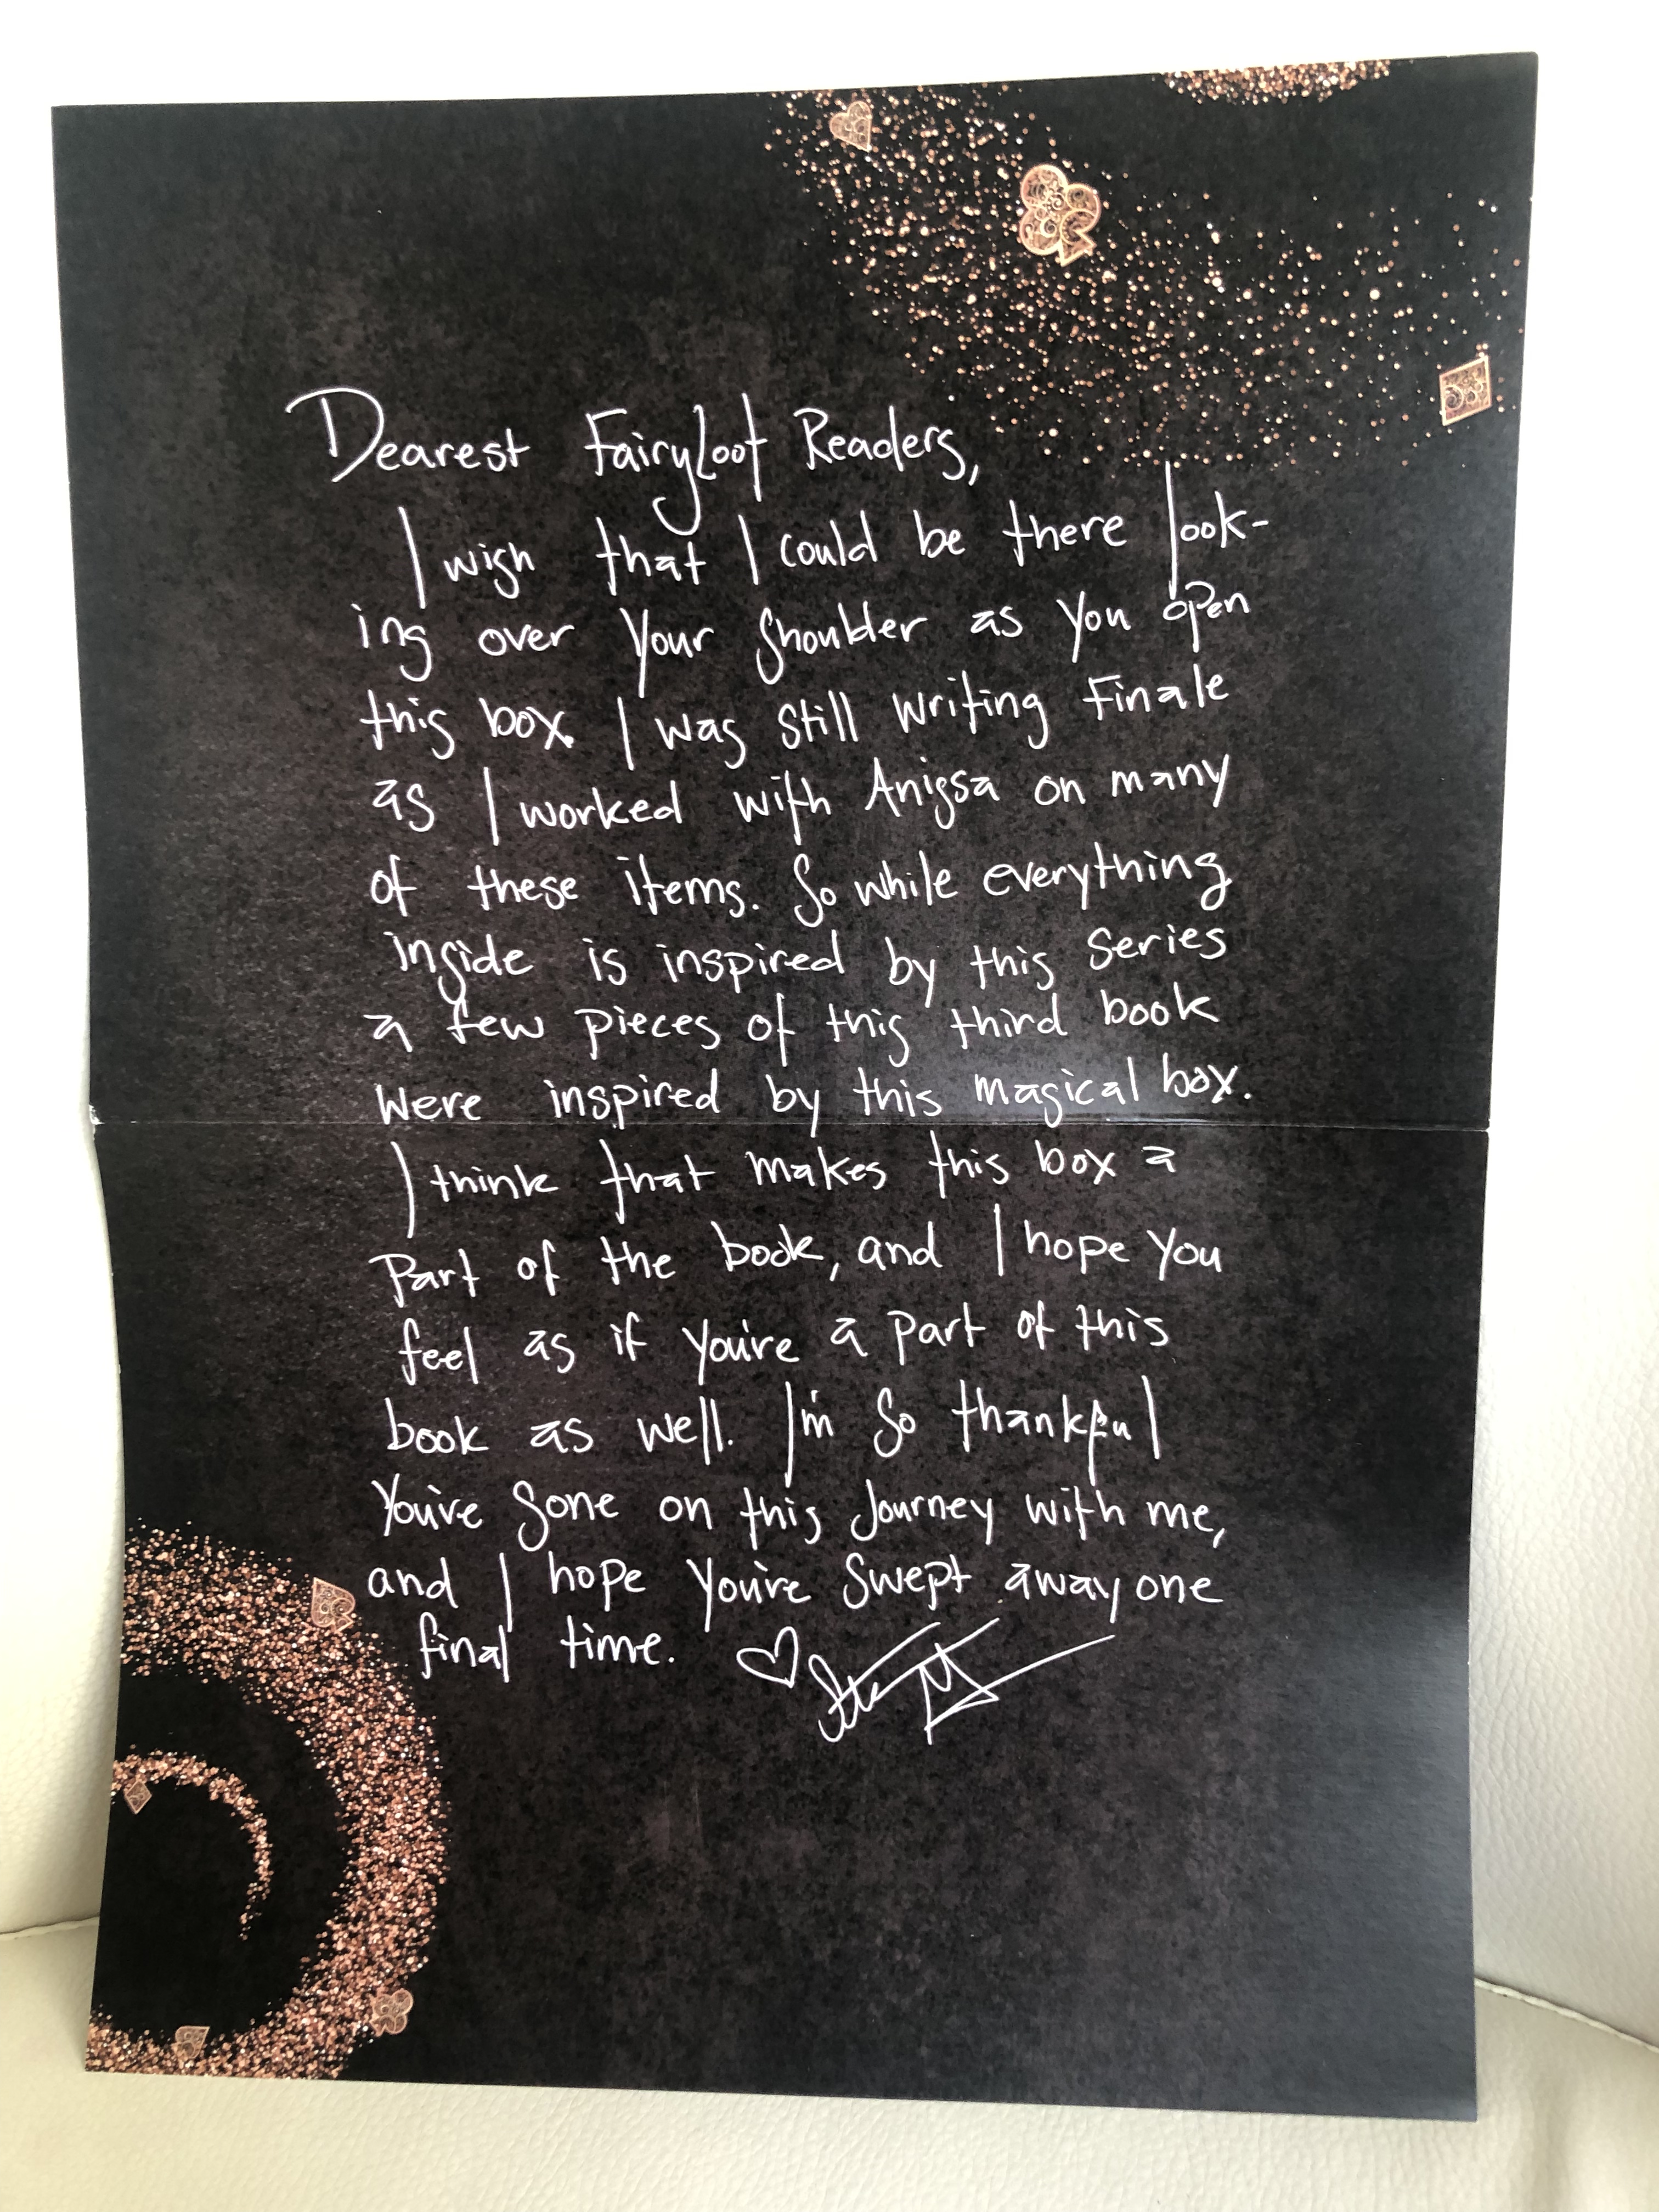 Dearest FairyLoot Readers,
I wish that I could be there look-
ing over your shoulder as you open
this box. I was still writing Finale
as I worked with Anissa on many
of these items. So while everything
inside is inspired by this series
a few pieces of this third book
were inspired by this magical box.
I think that makes this box a
part of the book, and I hope you
feel as if you're a part of this
book as well. I'm so thankful
you've gone on this journey with me,
and I hope you're swept away one
final time.